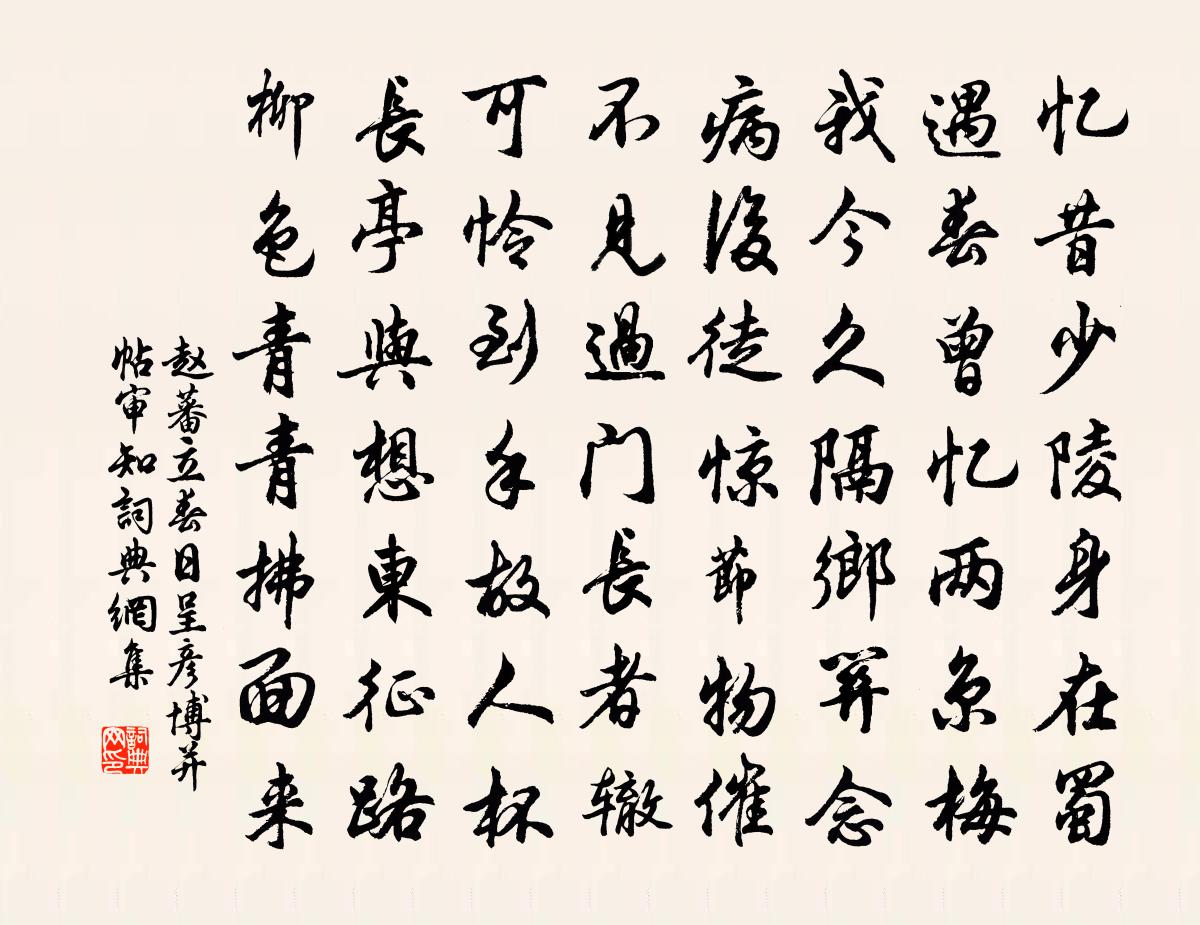 忆昔少陵身在蜀
遇春曾忆两京梅
我今久隔鄉笄念
病後徒惊節物催
不見過门長者辙
可怜到手故人杯
長亭與想東征路
柳色青青拂面来
赵蕃立春日呈彦博并
帖审知詞典網集
詞典网印